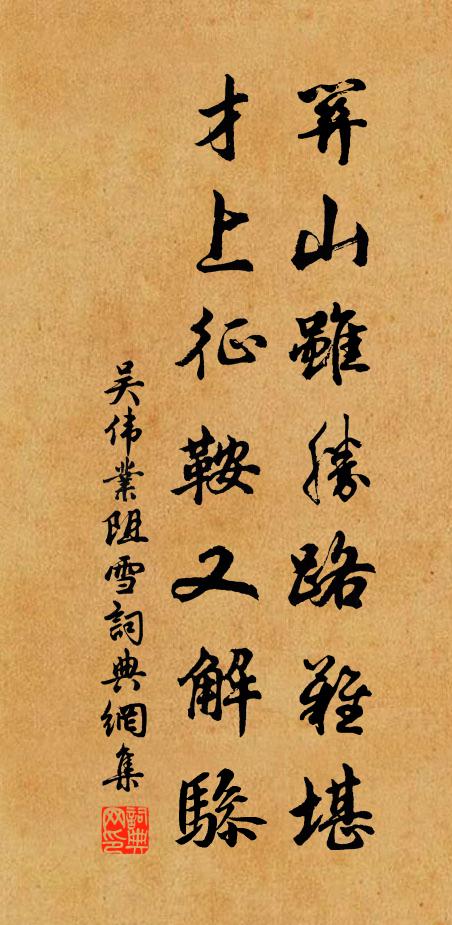 関山雖勝路難堪
才上征鞍又解驂
吴伟業阻雪詞典網集
詞典网印